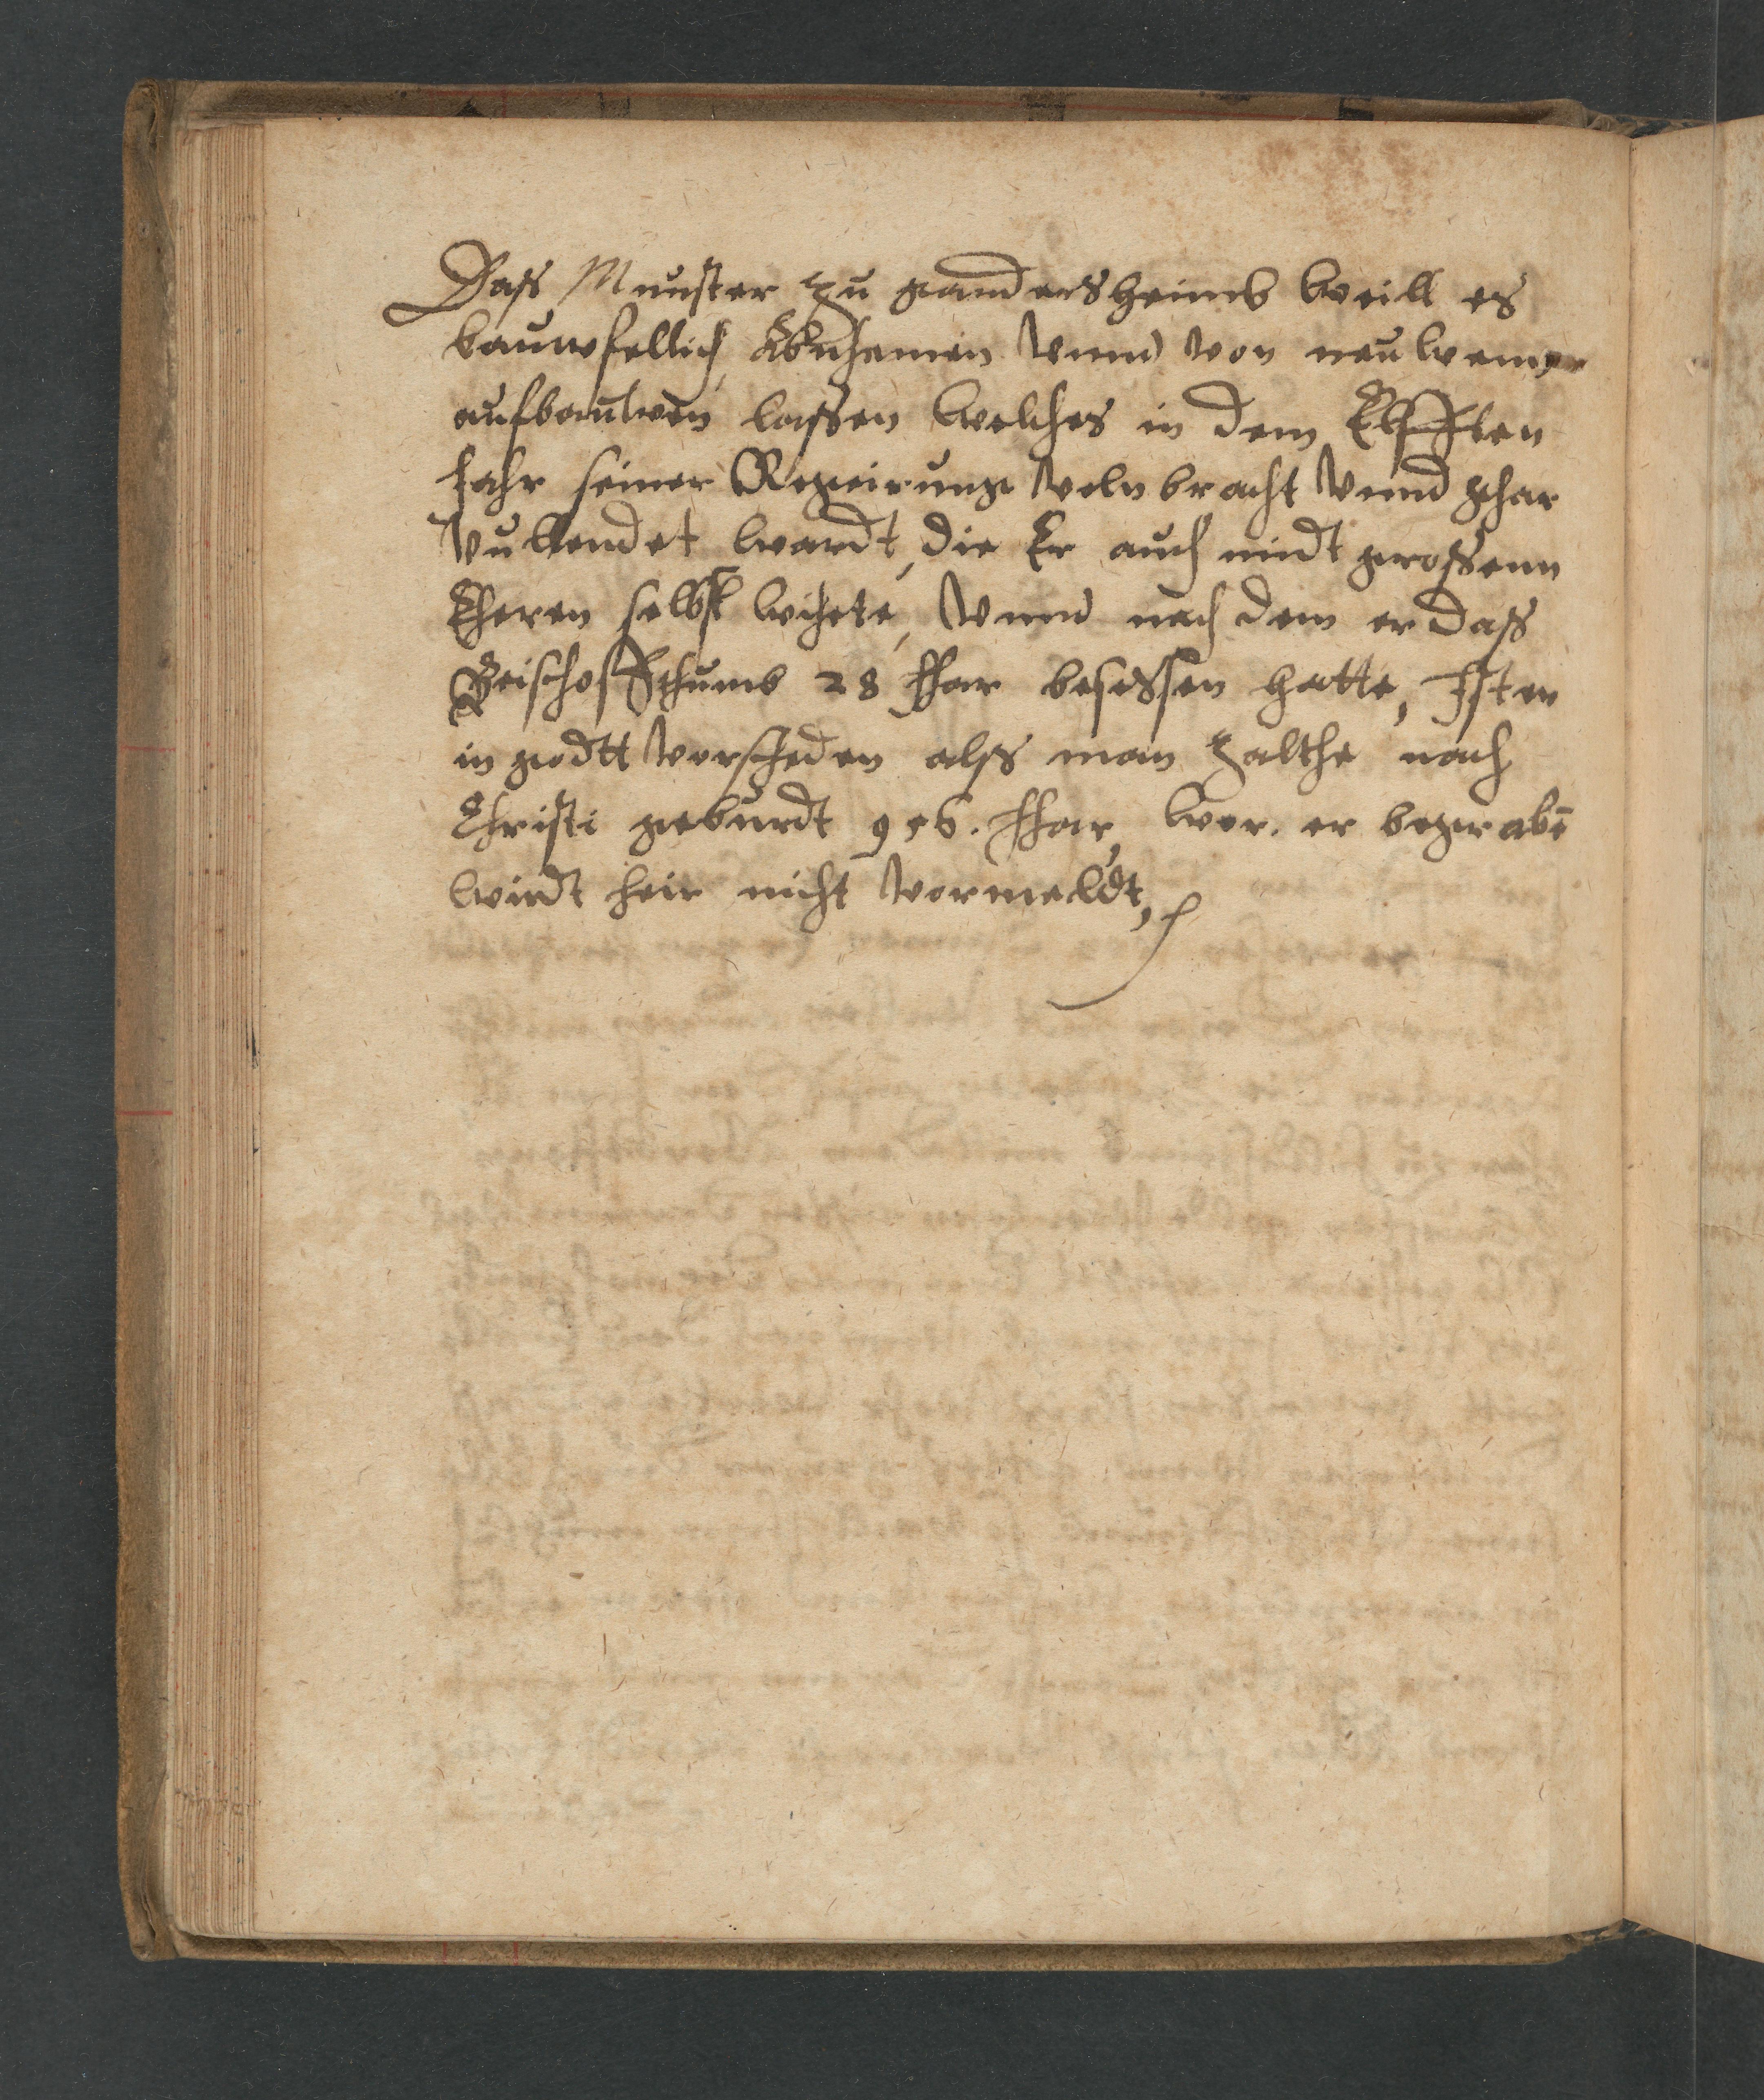 Dass Munster zu gandersheimb weill es
bauwfellich Abnhemen Vnnd von neuwem
aufbauwen lassen welches in dem Elfften
Jahr seiner Regeirunge Volnbracht Vnnd ghar
Vullendet wardt, die Er auch midt grossenn
Eheren selbst wihete, Vnnd nach dem er dass
Beischoffthumb 28 Jhar besessen hatte, Ist er
in godtt Vorscheden alss man zalthe nach
Christi geburdt 956. Jhar, wor. er begrabē
wirdt heir nicht Vormeldt,